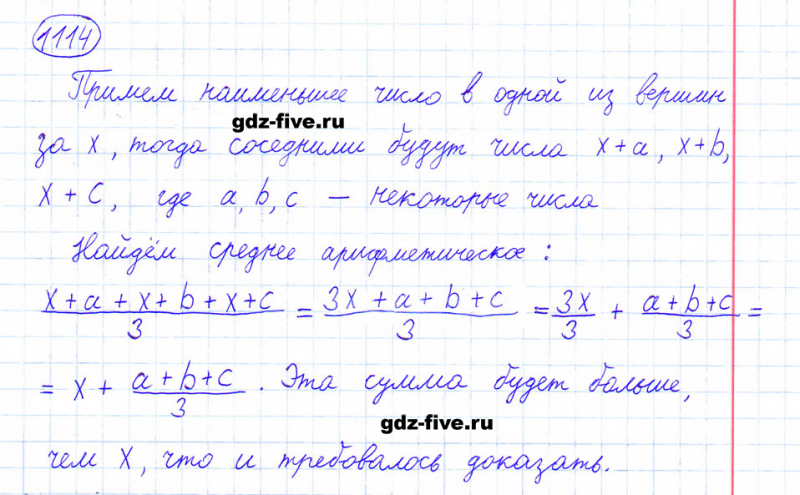 1114
Примем наименьшее число в одной из вершин
gdz-five.ru
за x, тогда соседними будут числа x+a, x+b,
x + c, где a, b, c — некоторые числа
Найдём среднее арифметическое:
(x+a+x+b+x+c)/3 = (3x+a+b+c)/3 = 3x/3 + (a+b+c)/3 =
= x + (a+b+c)/3. Эта сумма будет больше,
gdz-five.ru
чем x, что и требовалось доказать.